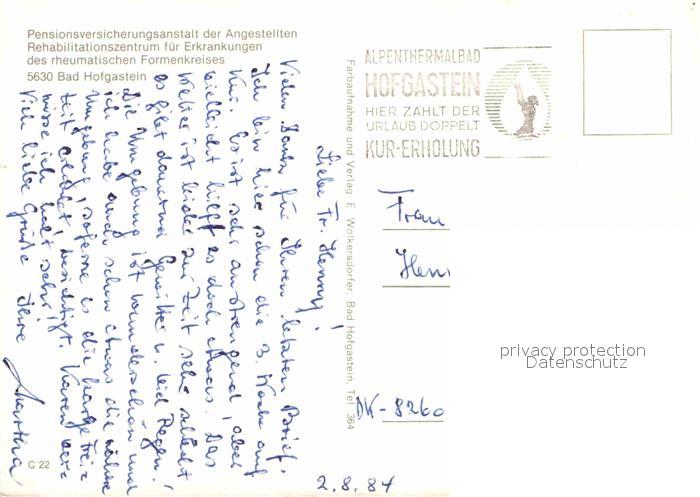 Pensionsversicherungsanstalt der Angestellten
Rehabilitationszentrum für Erkrankungen
des rheumatischen Formenkreises
5630 Bad Hofgastein
ALPENTHERMALBAD
HOFGASTEIN
HIER ZÄHLT DER
URLAUB DOPPELT
KUR-ERHOLUNG
2.8.84
Liebe Fr. Henny!
Vielen Dank für Ihren letzten Brief.
Ich bin hier schon die 3. Woche auf
Kur. Es ist sehr anstrengend, aber
vielleicht hilft es doch etwas. Das
Wetter ist leider zur Zeit sehr schlecht
es gibt dauernd Gewitter u. viel Regen.
Die Umgebung ist wunderschön und
ich habe auch schon etwas die nähere
Umgebung, soferne es die karge Freizeit
erlaubt, besichtigt. Karen
müsse ich halt sehr!
Viele liebe Grüße Ihre
Martina
Farbaufnahme und Verlag E. Wolkersdorfer, Bad Hofgastein, Tel. 364
Frau
DK-8260
privacy protection
Datenschutz
C 22